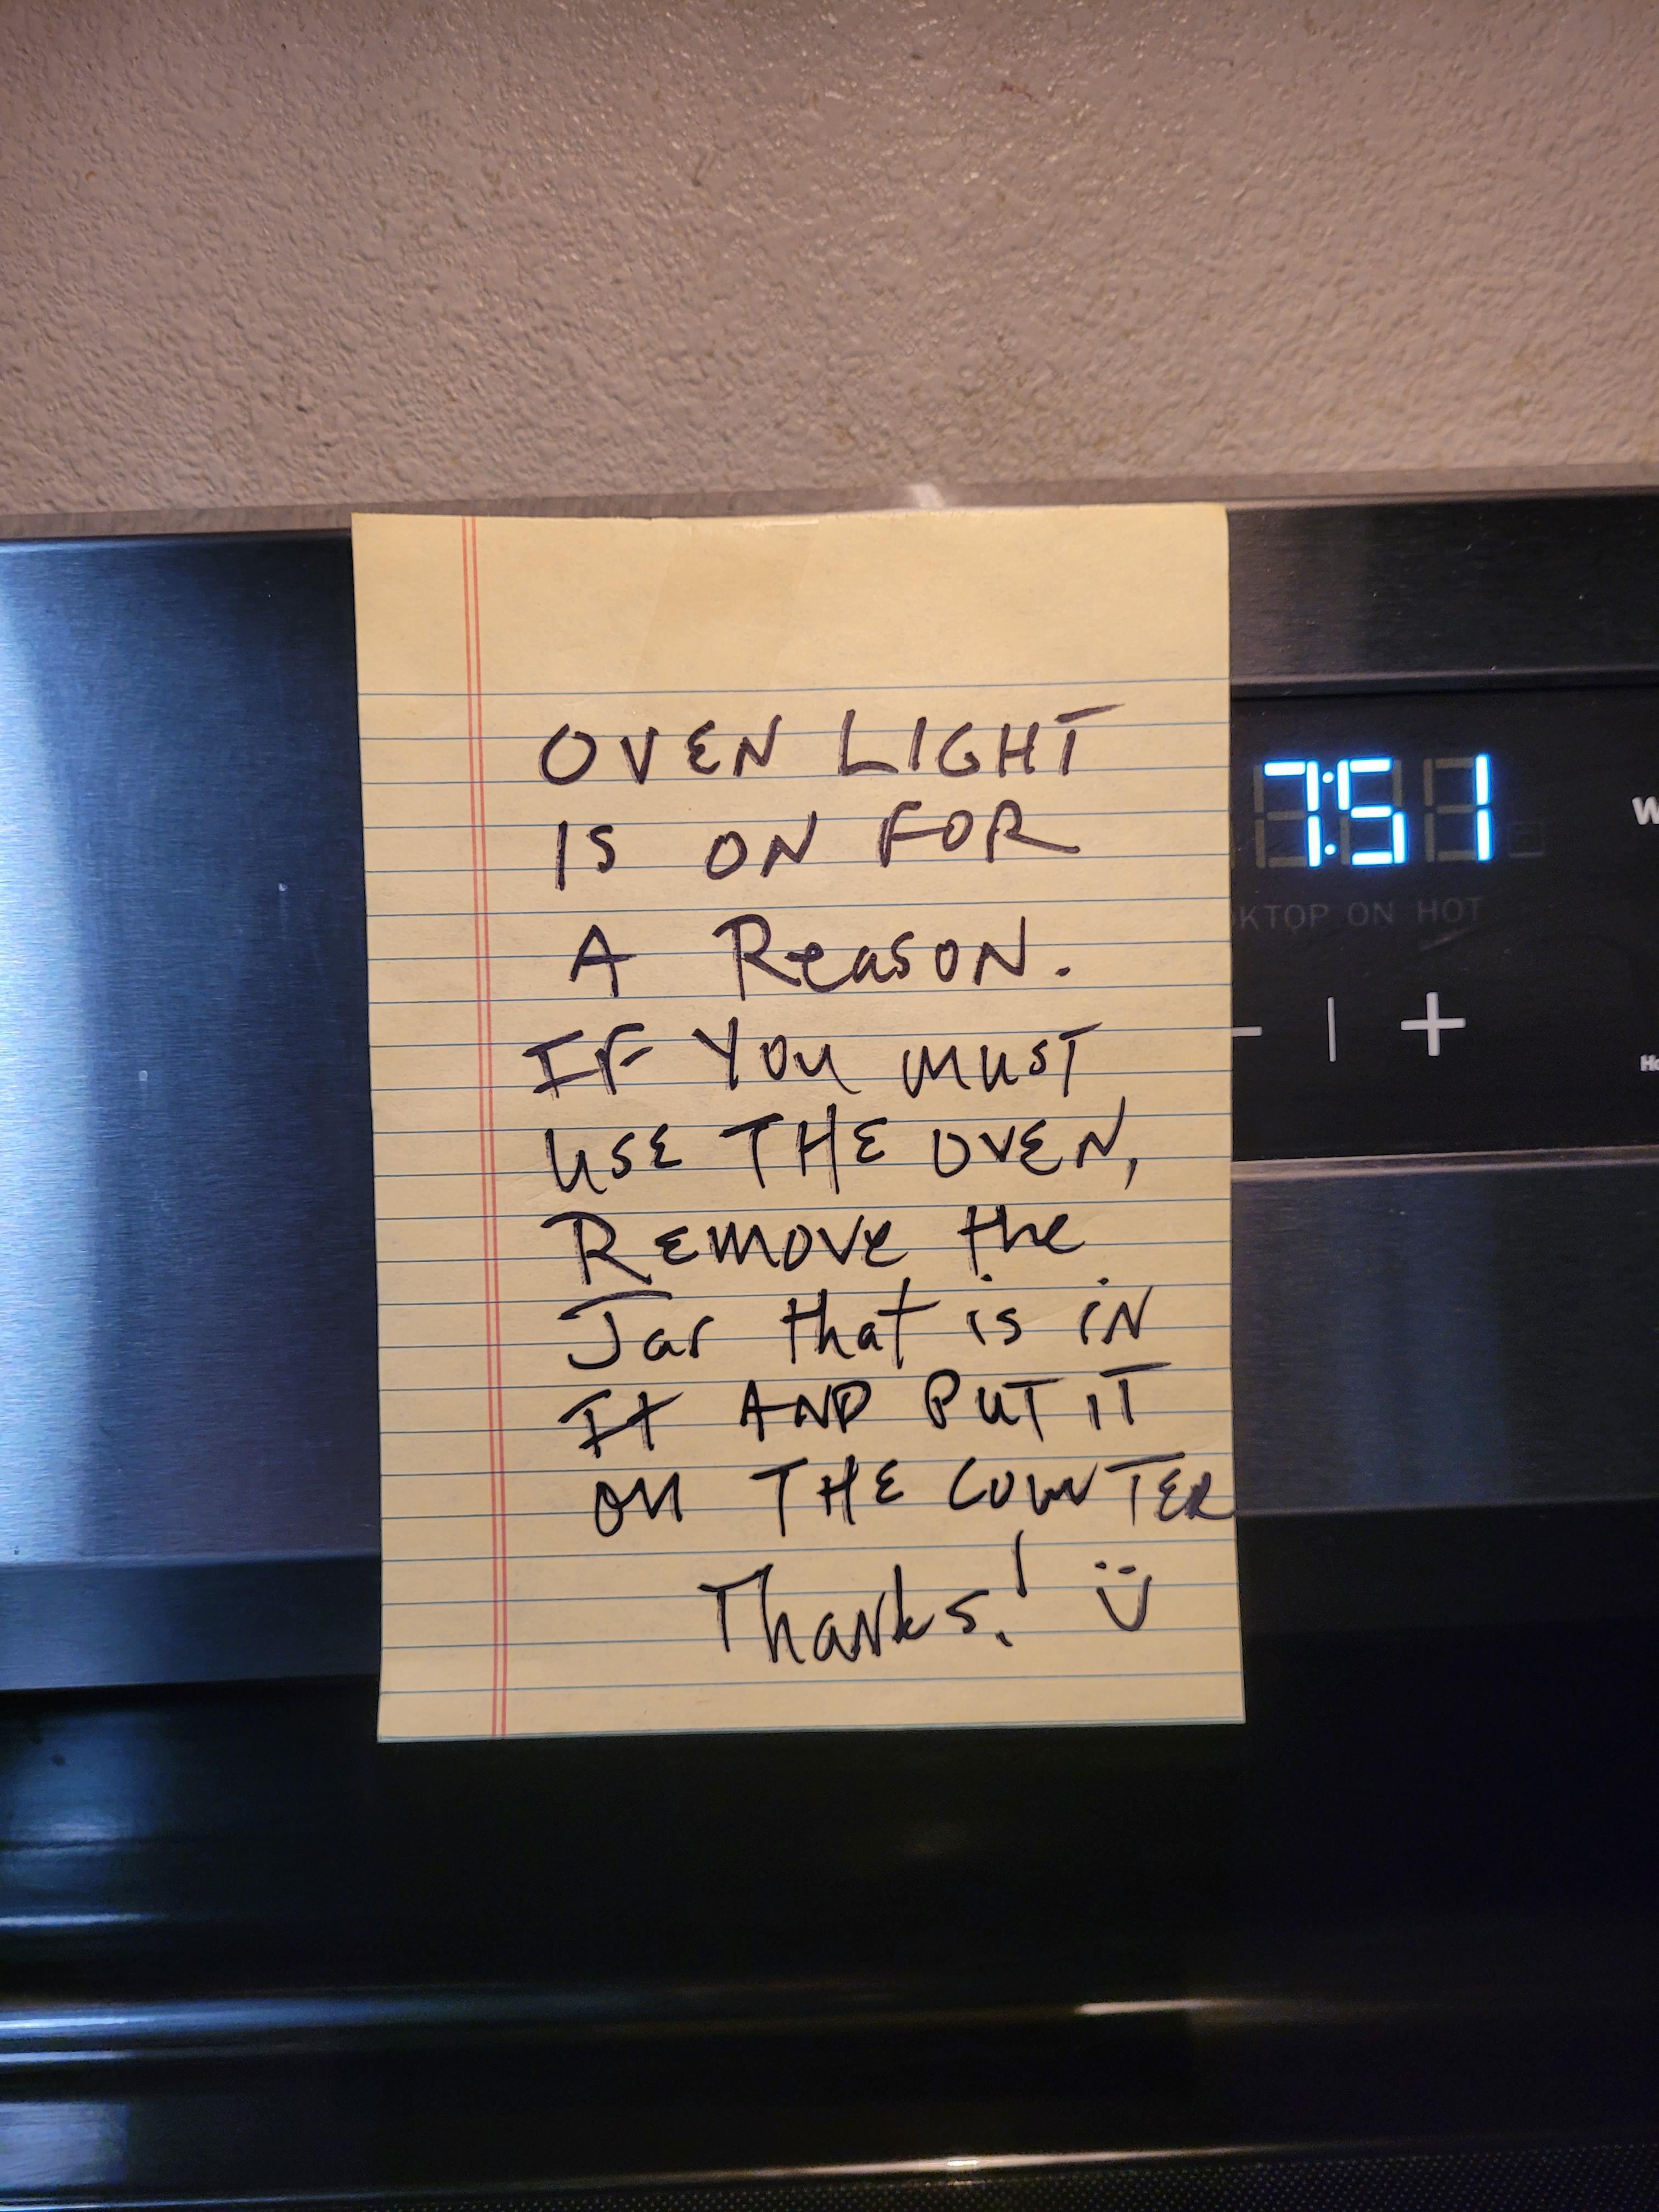 OVEN LIGHT
IS ON FOR
A Reason.
IF You must
use THE OVEN,
Remove the
Jar that is in
It AND PUT IT
on THE COUNTER
Thanks! :)
7:51
KTOP ON HOT
- | +
W
Ho